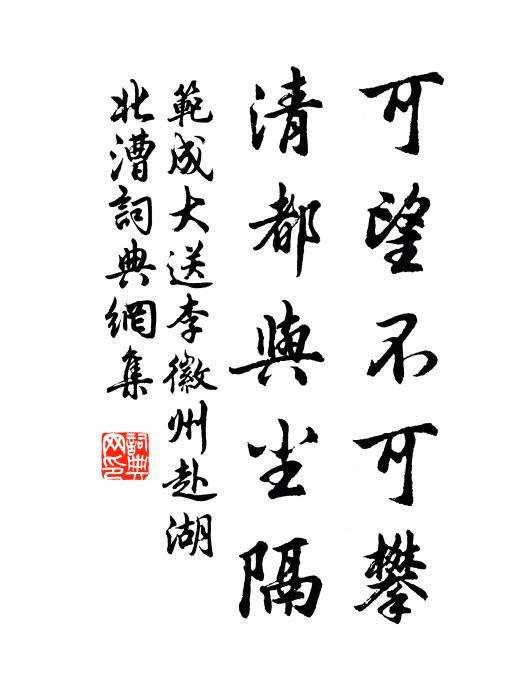 可望不可攀
清都與尘隔
範成大送李徽州赴湖
北漕詞典網集
詞典网印